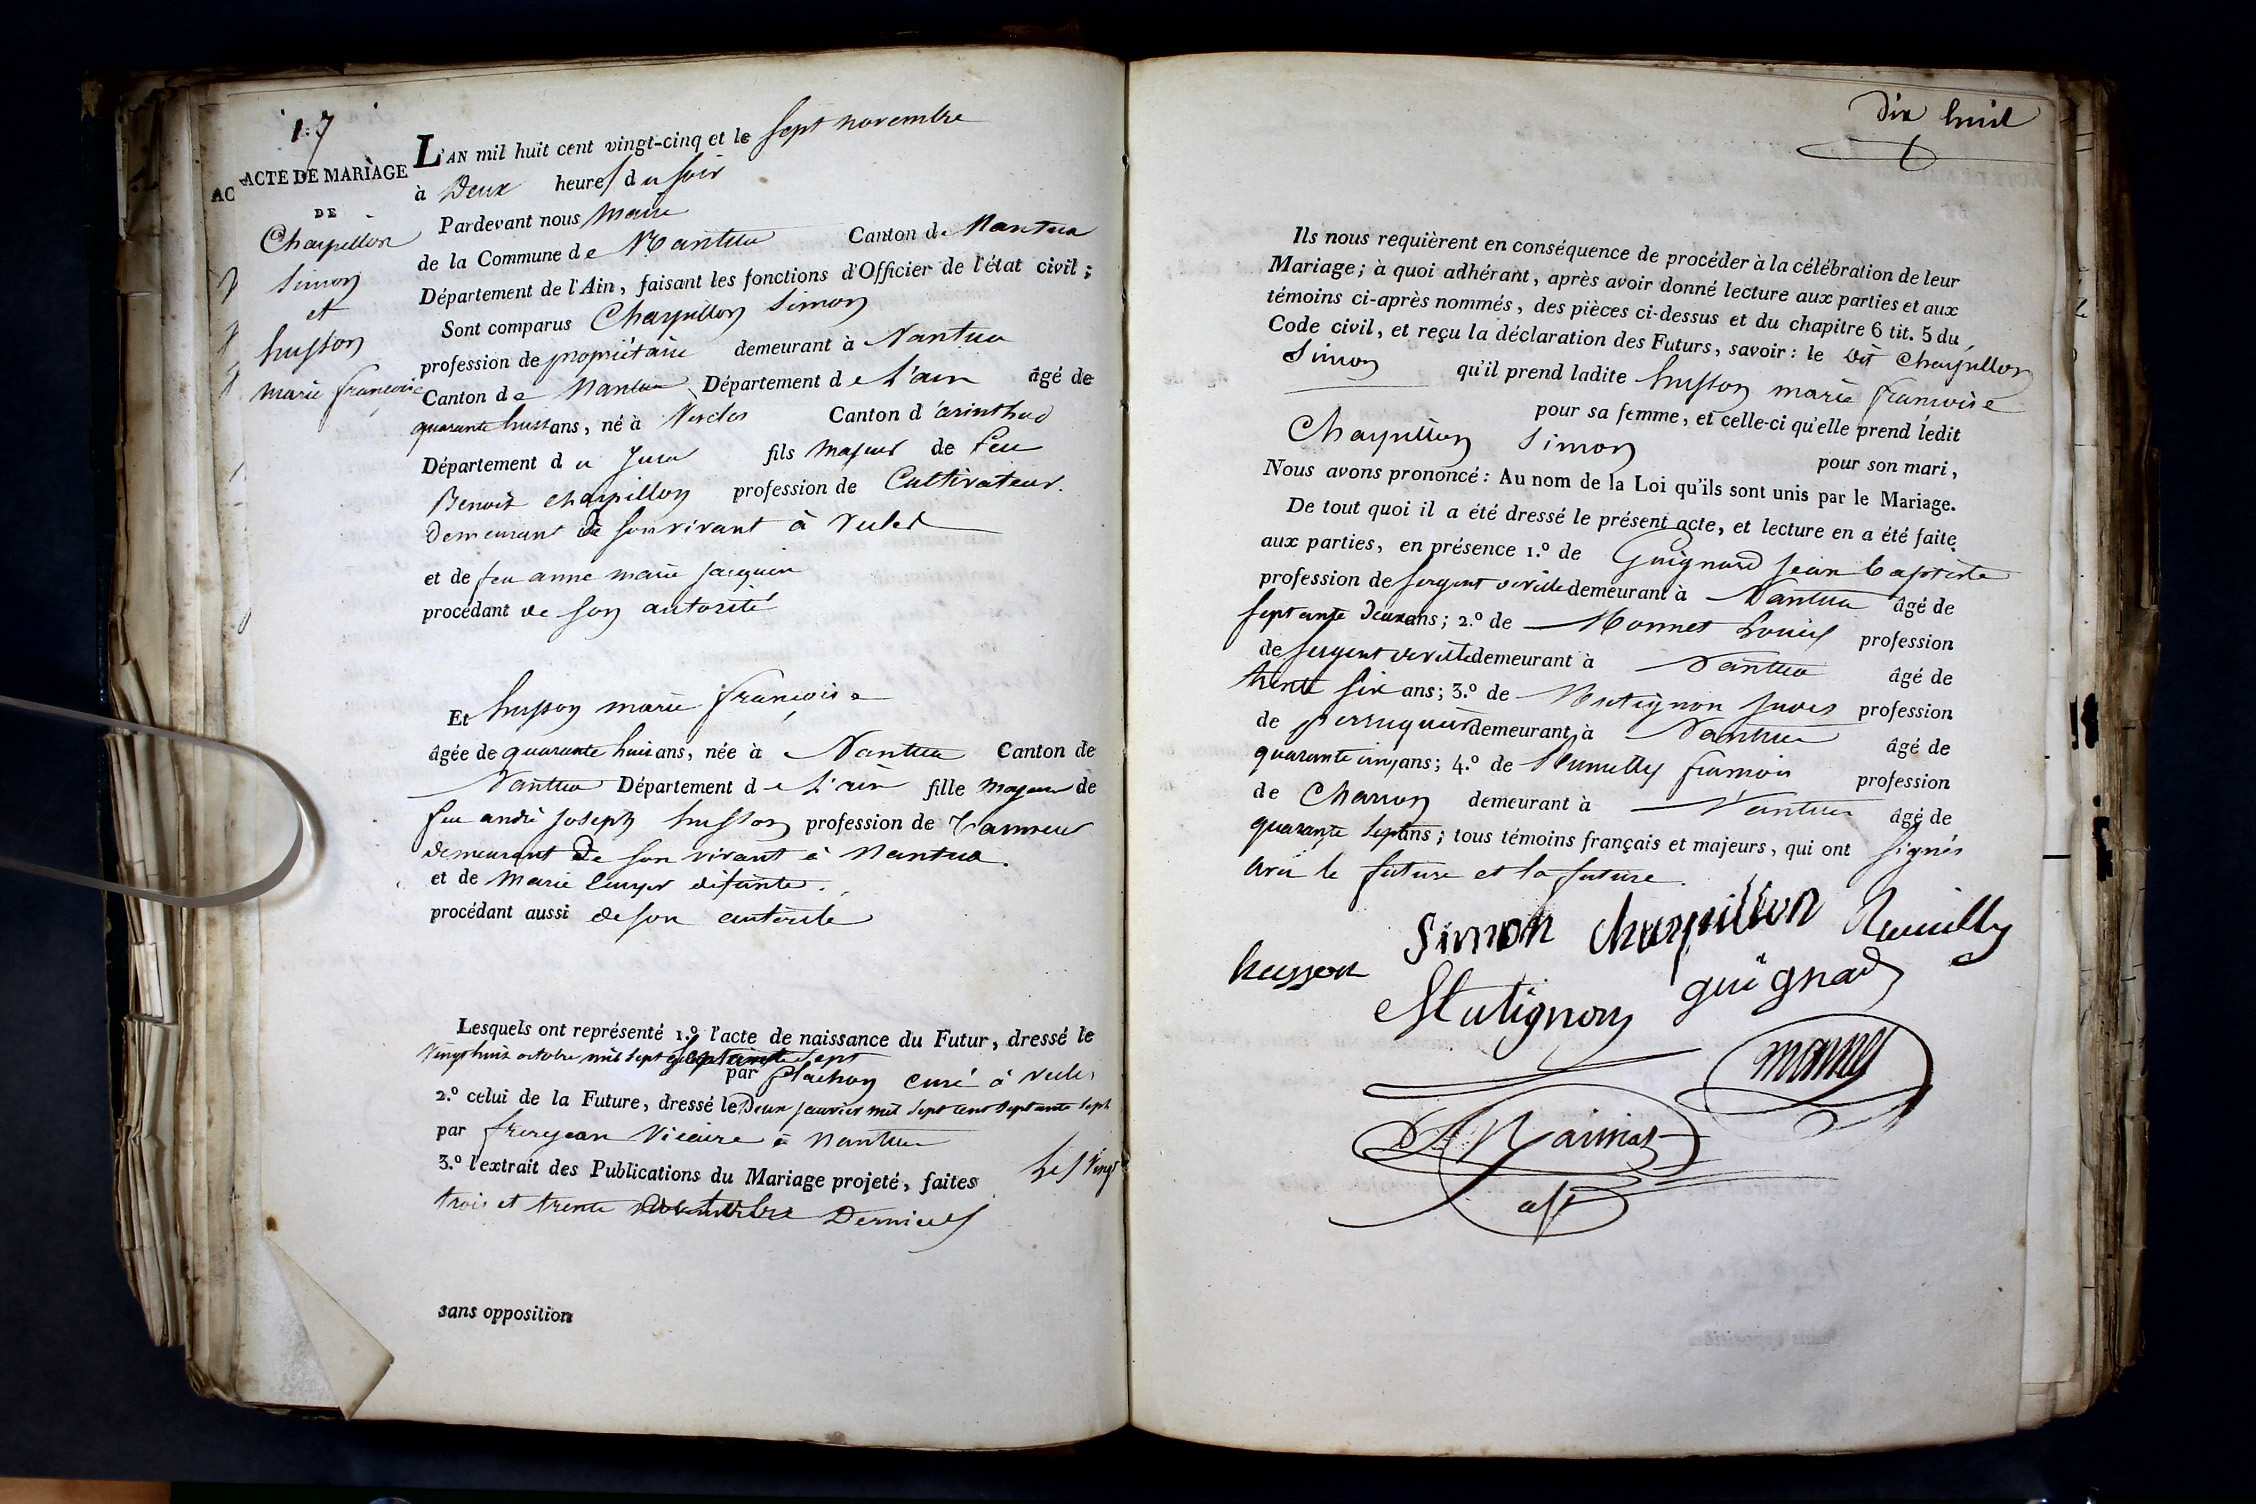 17
ACTE DE MARIAGE
DE
Charpillon
Simon
et
husson
marie françoise
AC
L'AN mil huit cent vingt-cinq et le sept novembre
à Deux heures du soir
Pardevant nous Maire
de la Commune de Nantua Canton de Nantua
Département de l'Ain, faisant les fonctions d'Officier de l'état civil;
Sont comparus Charpillon Simon
profession de propriétaire demeurant à Nantua
Canton de Nantua Département de L'ain âgé de
quarante huit ans, né à Canton d'arinthod
Département du Jura fils majeur de feu
Benoit charpillon profession de Cultivateur.
demeurant de son vivant à
et de feu anne marie jacquin
procédant de son autorité
Et husson marie françoise
âgée de quarante huit ans, née à Nantua Canton de
Nantua Département de L'ain fille majeure de
feu andré joseph husson profession de Tanneur
demeurant de son vivant à Nantua.
et de Marie défunte.
procédant aussi de son autorité
Lesquels ont représenté 1.º l'acte de naissance du Futur, dressé le
Vingt huit octobre mil sept septante sept
par curé à
2.º celui de la Future, dressé le Deux janvier mil sept cent septante sept
par frerejean Vicaire à Nantua
3.º l'extrait des Publications du Mariage projeté, faites les Vingt
trois et trente Derniers
sans opposition
Dix huit
Ils nous requièrent en conséquence de procéder à la célébration de leur
Mariage; à quoi adhérant, après avoir donné lecture aux parties et aux
témoins ci-après nommés, des pièces ci-dessus et du chapitre 6 tit. 5 du
Code civil, et reçu la déclaration des Futurs, savoir: le dit Charpillon
Simon qu'il prend ladite husson marie françoise
pour sa femme, et celle-ci qu'elle prend ledit
Charpillon Simon pour son mari,
Nous avons prononcé: Au nom de la Loi qu'ils sont unis par le Mariage.
De tout quoi il a été dressé le présent acte, et lecture en a été faite
aux parties, en présence 1.º de Guignard jean baptiste
profession de sergent de ville demeurant à Nantua âgé de
septante deux ans; 2.º de Monnet Louis profession
de sergent de ville demeurant à Nantua âgé de
trente six ans; 3.º de profession
de perruquier demeurant à Nantua âgé de
quarante cinq ans; 4.º de françois profession
de Charron demeurant à Nantua âgé de
quarante sept ans; tous témoins français et majeurs, qui ont signés
avec le futur et la future.
Simon charpillon
husson
guignard